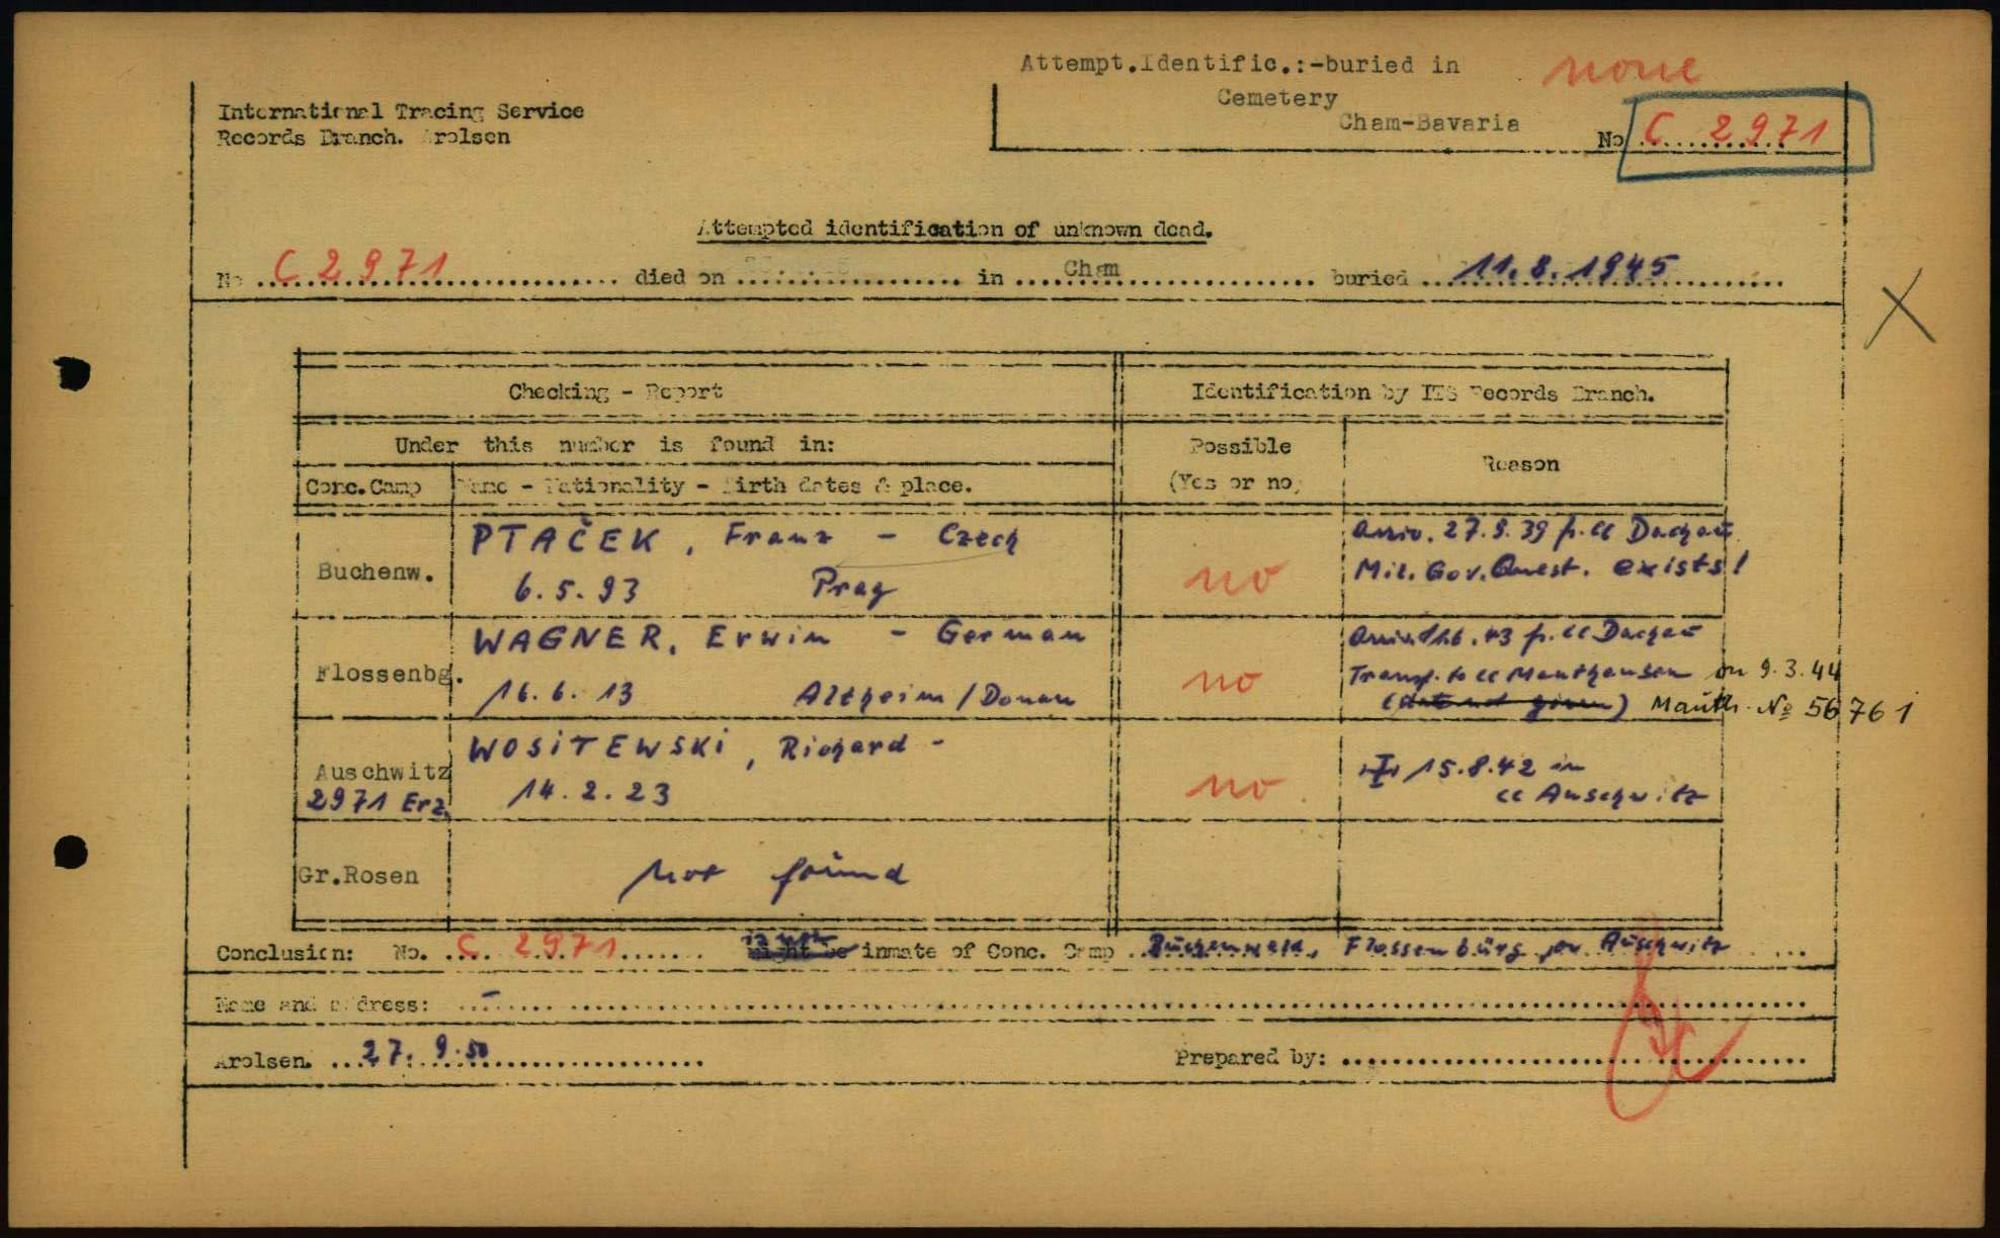 Attempt.Identific.:-buried in none
Cemetery
Cham-Bavaria
International Tracing Service
Records Branch. Arolsen
No. C 2971
Attempted identification of unknown dead.
No C 2971 died on in Cham buried 11.8.1945
X
Checking - Report
Identification by ITS Records Branch.
Under this number is found in:
Possible
(Yes or no)
Reason
Conc.Camp
Name - Nationality - Birth dates & place.
Buchenw.
PTAČEK, Franz - Czech
6.5.93 Prag
no
Arriv. 27.9.39 fr. CC Dachau
Mil. Gov. Quest. exists!
Flossenbg.
WAGNER, Erwin - German
16.6.13 Altheim/Donau
no
fr. CC Dachau
Transf. to CC Mauthausen on 9.3.44
(date not given) Mauth. No 56761
Auschwitz
2971 Erz.
WOSITEWSKI, Richard -
14.2.23
no
15.8.42 in
CC Auschwitz
Gr.Rosen
not found
Conclusion: No. C 2971 is not inmate of Conc. Camp Buchenwald, Flossenbürg or Auschwitz
Name and address: -
Arolsen. 27.9.50
Prepared by: